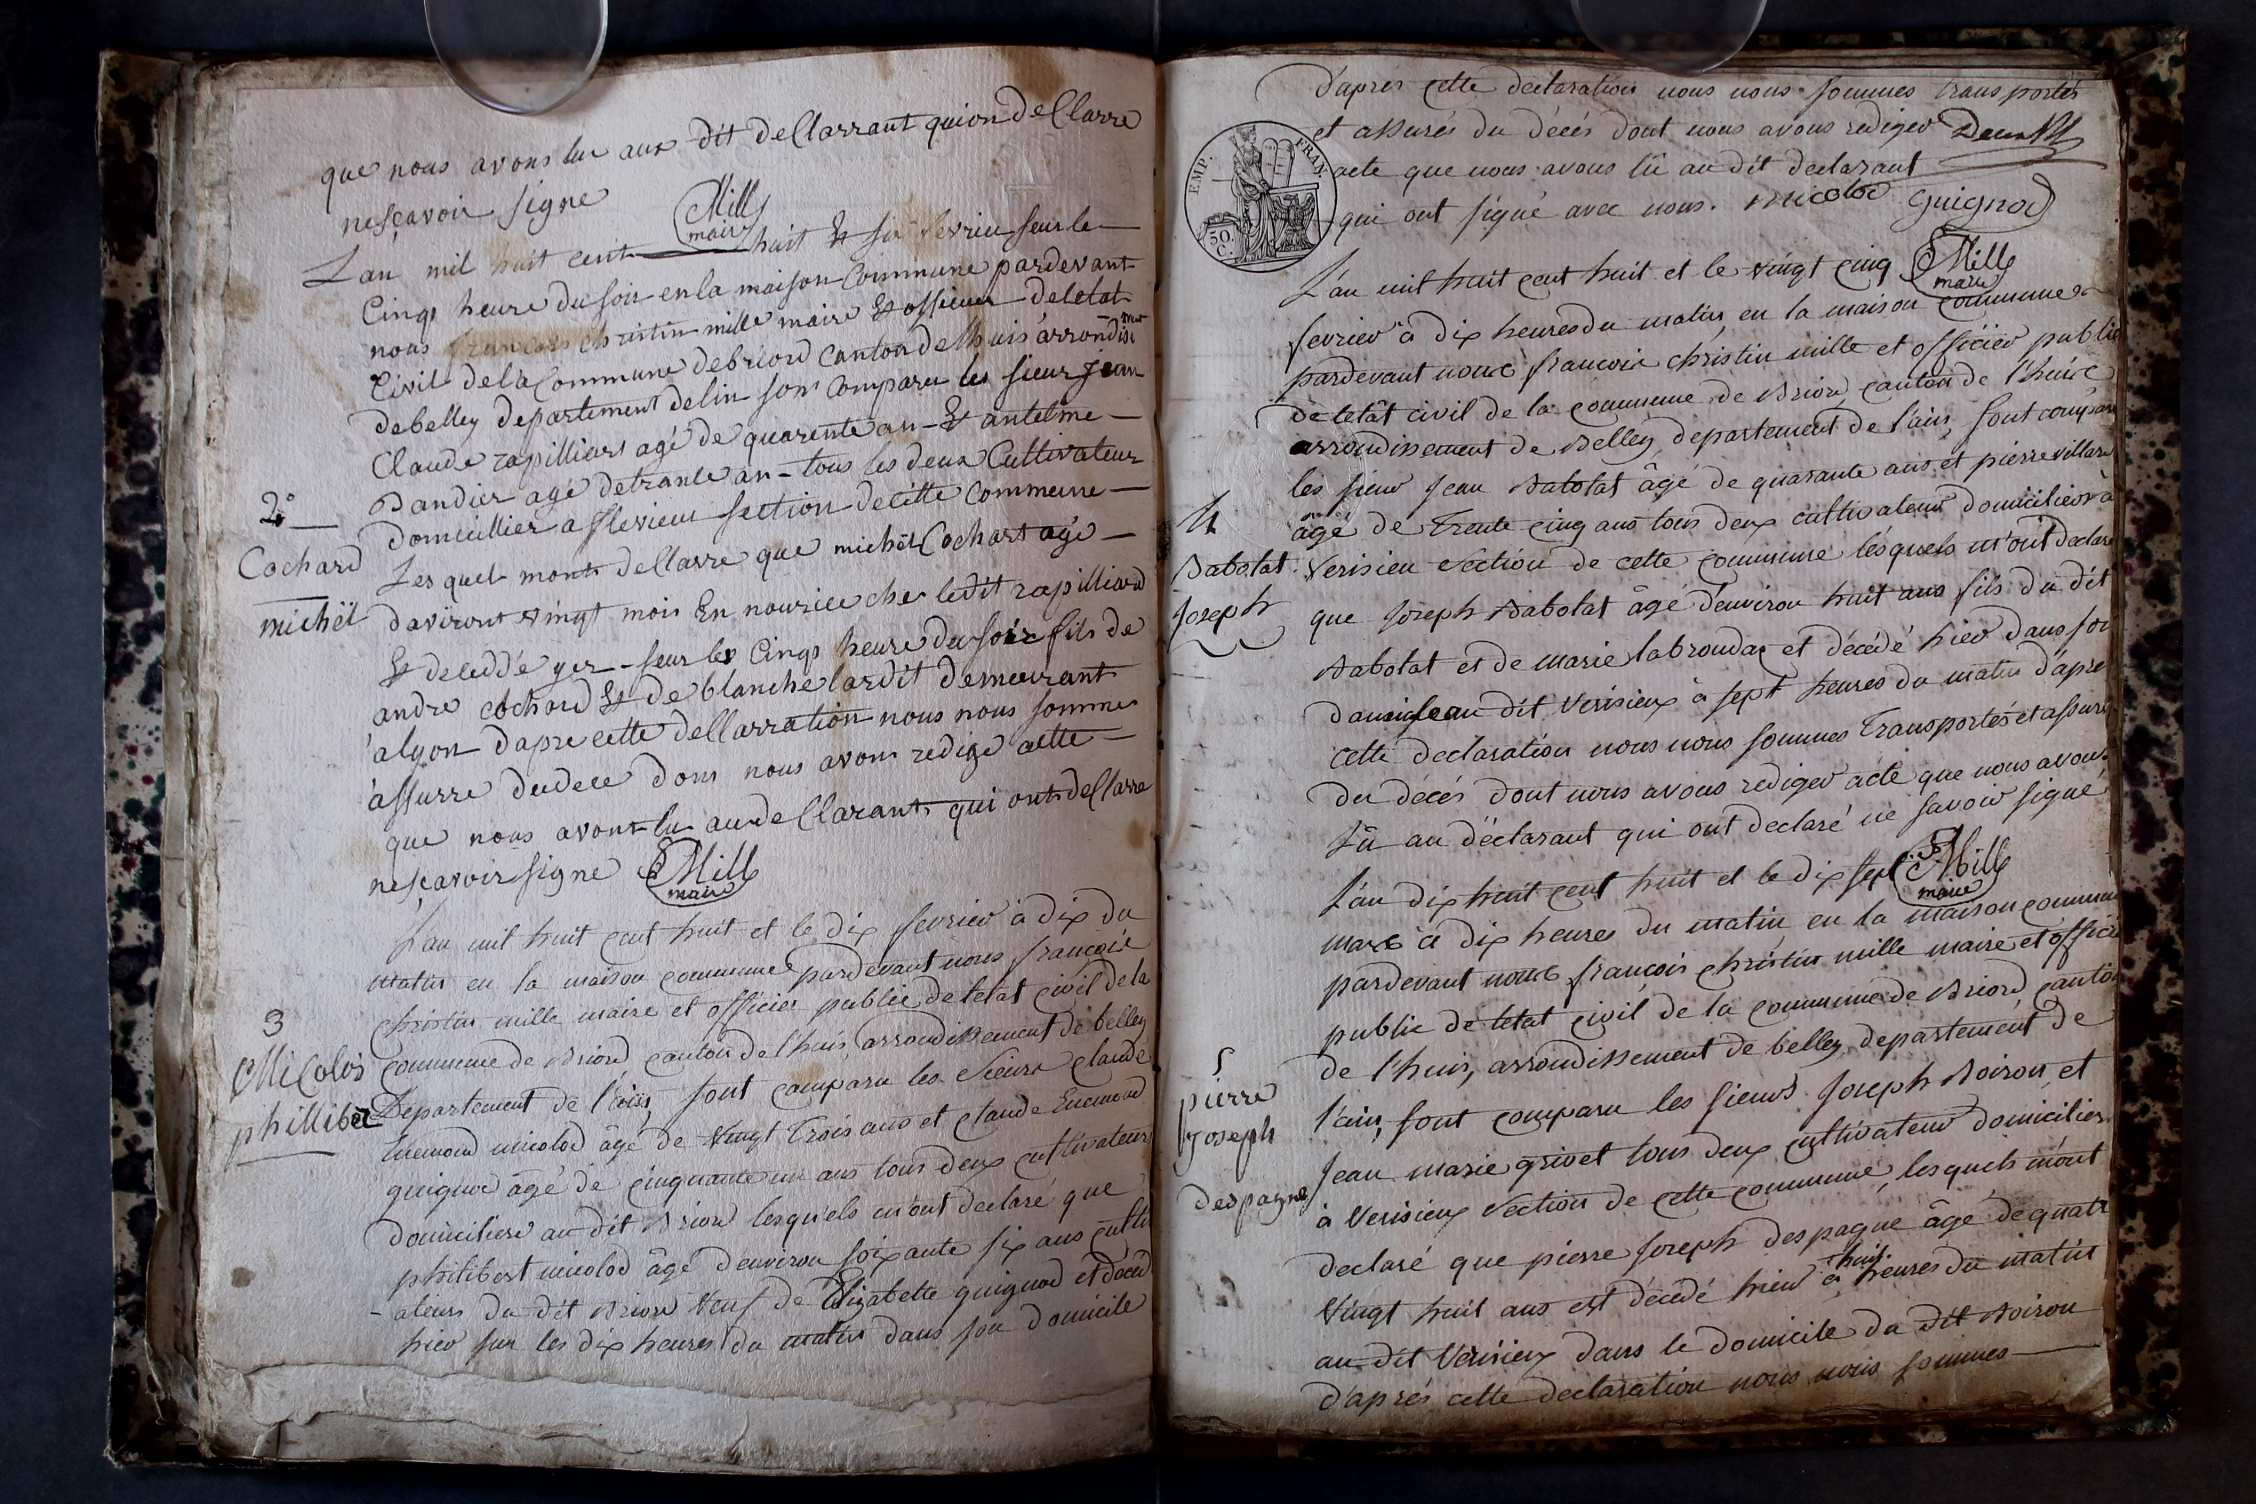 que nous avons lu aux dit deClarrant quion deClarre
nescavoir signe
Mille
maire
L'an mil huit cent huit & six fevrier seur le
Cinqs heure du soir en la maison Commune pardevant
nous francois christin mille maire & officier de letat
Civil de la Commune de briord canton de lhuis arrondisment
de belley departement de lin son comparu les sieur jean
Claude rapilliart agé de quarente an - & antelme
Dandier agé de trante an - tous les deux Cultivateur
domicillier a flevieu section de cette Commeune
2°
Cochard
michel
Les quel monts deClarre que michel Cochart agé
daviront vingt mois En nourice che ledit rapilliard
& deceddé yer - seur les Cinqs heure du soir fils de
andre cochard & de blanche lardit demeurant
a lyon dapre cette deClarration nous nous somme
assurre dudece dons nous avons redige actte
que nous avons lu au deClarants qui onts deClarre
nescavoir signe
Mille
maire
L'an mil huit cent huit et le dix fevrier à dix du
matin en la maison commune pardevant nous francois
christin mille maire et officier public de letat civil de la
3
Micolod
phillibert
commune de Briord canton de lhuis arrondissement de belley
Departement de l'ain, sont comparu les Sieurs claude
Enemond micolod âgé de vingt trois ans et claude Enemond
guignod âgé de cinquante un ans tous deux cultivateurs
domiciliers au dit Briord lesquels m'ont declaré que
philibert micolod âgé d'environ soixante six ans culti
-ateurs du dit Briord veuf de Elizabette guignod et décédé
hier sur les dix heures du matin dans son domicile
d'aprés cette declaration nous nous sommes transportés
et assurés du décés dont nous avons rediger
acte que nous avons lû au dit declarant
qui ont signé avec nous. micolod guignod
EMP. FRAN.
50.
C.
Mille
maire
L'an mil huit cent huit et le vingt cinq
fevrier à dix heures du matin en la maison commune
pardevant nous francois christin mille et officier public
de letât civil de la commune de Briord canton de l'huis
arrondissement de Belley, departement de l'ain, sont comparu
les sieur Jean Babolat âgé de quarante ans et pierre villard
âgé de Trente cinq ans tous deux cultivateurs domiciliers à
4
Babolat
Joseph
Verisieu Section de cette commune lesquels m'ont declaré
que Joseph Babolat âgé d'environ huit ans fils du dit
Babolat et de marie labrouda et décédé hier dans son
au dit Verisieux à sept heures du matin d'aprés
cette declaration nous nous sommes Transportés et assurés
du décés dont nous avons rediger acte que nous avons
lû au déclarant qui ont declaré ne savoir signé
Mille
maire
L'an dix huit cent huit et le dix sept
mars à dix heures du matin, en la maison commune
pardevant nous francois christin mille maire et officier
public de letat civil de la commune de Briord canton
de l'huis, arrondissement de belley departement de
5
pierre
Joseph
despagne
l'ain, sont comparu les sieurs Joseph Boiron et
Jean marie grivet tous deux cultivateurs domiciliers
à Verisieux Section de cette commune, lesquels m'ont
declaré que pierre Joseph despagne âgé de quatre
vingt huit ans est décédé hier à huit heures du matin
au dit Verisieux dans le domicile du dit Boiron
d'aprés cette declaration nous nous sommes